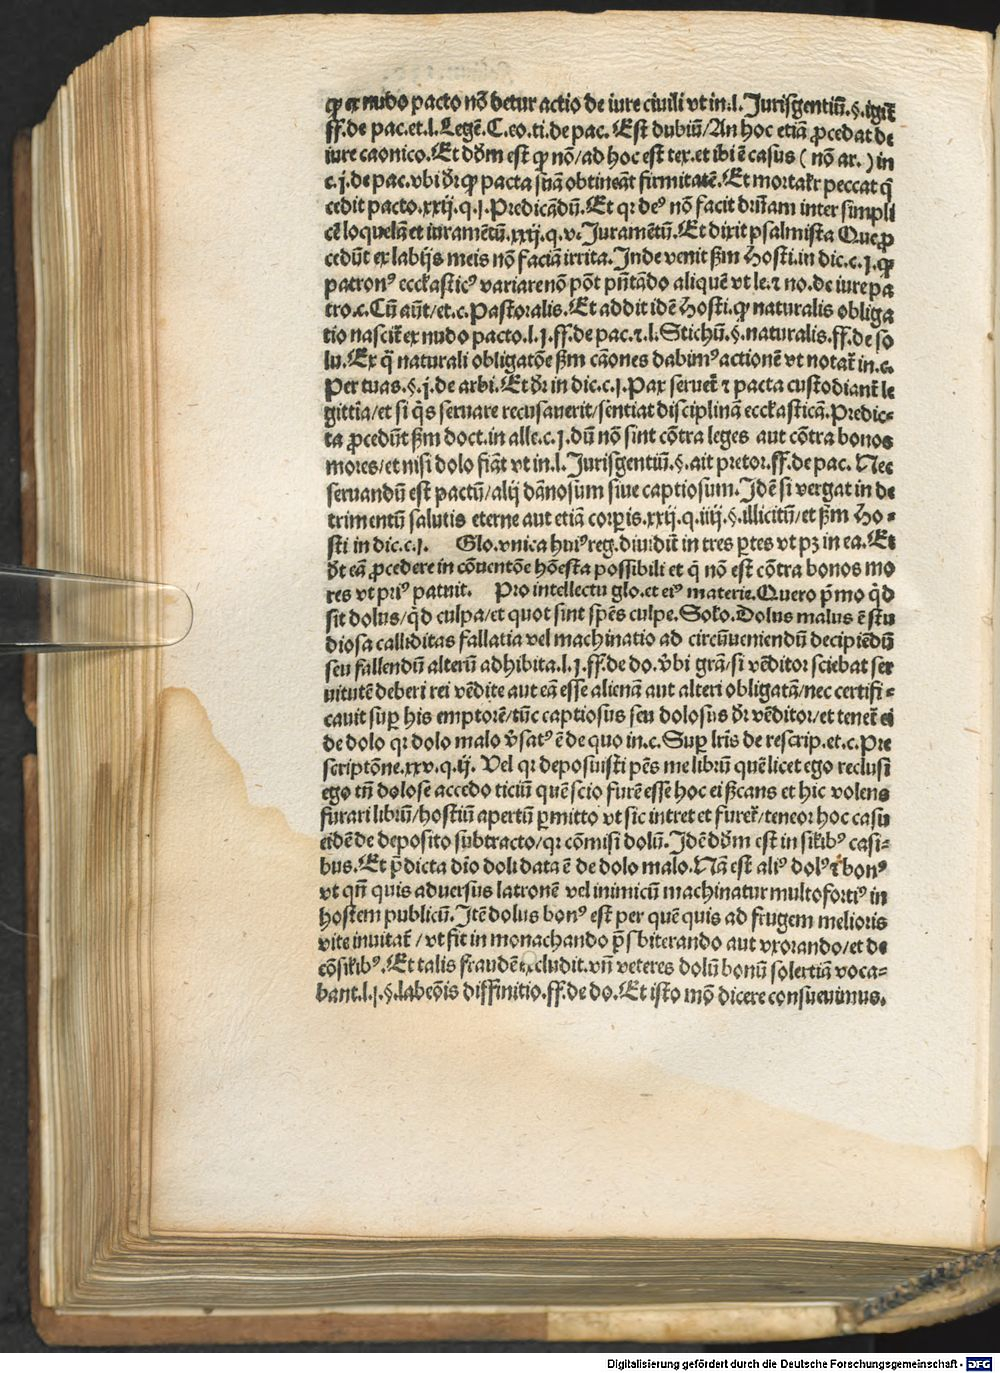 ꝙ ex nudo pacto nõ detur actio de iure ciuili vt in.l. Jurisgentiũ.§.igit᷑
ff.de pac.et.l.Legẽ.C.eo.ti.de pac. Est dubiũ/An hoc etiã ꝓcedat de
iure caonico.Et dđm est ꝙ nõ/ad hoc est tex.et ibi ẽ casus ( nõ ar. ) in
c.j.de pac.vbi dr̃ ꝙ pacta suã obtineãt firmitatẽ.Et mortalr̃ peccat q̃
cedit pacto.xxij.q.j.Predicãdũ.Et qr deꝰ nõ facit dr̃nam inter simpli
cẽ loquelã et iuramẽtũ.xxij.q.v.Juramẽtũ.Et dixit psalmista Que ꝓ
cedũt ex labijs meis nõ faciã irrita.Inde venit ẜm Hosti.in dic.c.j.ꝙ
patronꝰ eccľasticꝰ variare nõ põt pñtãdo aliquẽ vt le.⁊ no.de iure pa
tro.c.Cũ aũt/et.c.Pastoralis.Et addit idẽ Hosti.ꝙ naturalis obliga
tio nascit᷑ ex nudo pacto.l.j.ff.de pac.⁊.l.Stichũ.§.naturalis.ff.de so
lu.Ex q̃ naturali obligatõe ẜm cãones dabimꝰ actionẽ vt notat᷑ in.c.
Per tuas.§.j.de arbi.Et dr̃ in dic.c.j.Pax seruet᷑ ⁊ pacta custodiant᷑ le
gittia/et si q̃s seruare recusauerit/sentiat disciplinã eccľasticã.Predic⸗
ta ꝓcedũt ẜm doct.in alle.c.j.dũ nõ sint cõtra leges aut cõtra bonos
mores/et nisi dolo fiãt vt in.l.Jurisgentiũ.§.ait pretor.ff.de pac. Nec
seruandũ est pactũ/alij dãnosum siue captiosum.Idẽ si vergat in de
trimentũ salutis eterne aut etiã coꝛꝑis.xxij.q.iiij.§.illicitũ/et ẜm Ho⸗
sti in dic.c.j. Glo.vnica huiꝰ reg.diuidit᷑ in tres ꝑtes vt pꝫ in ea.Et
đt eã ꝓcedere in cõuentõe hõesta possibili et q̃ nõ est cõtra bonos mo
res vt priꝰ patuit. Pro intellectu glo.et eiꝰ materie.Quero p̃mo qd̃
sit dolus/qd̃ culpa/et quot sint sp̃es culpe.Solo.Dolus malus ẽ stu
diosa calliditas fallatia vel machinatio ad circũueniendũ decipiẽdũ
seu fallendũ alterũ adhibita.l.j.ff.de do.v̾bi grã/si vẽditor sciebat ser
uitutẽ deberi rei vẽdite aut eã esse alienã aut alteri obligatã/nec certifi⸗
cauit suꝑ his emptorẽ/tũc captiosus seu dolosus dr̃ vẽditor/et tenet᷑ ei
de dolo qr dolo malo v̾satꝰ ẽ de quo in.c.Suꝑ lr̃is de rescrip.et.c.Pre
scriptõne.xxv.q.ij. Vel qr deposuisti pẽs me librũ quẽ licet ego reclusi
ego tñ dolose accedo ticiũ quẽ scio furẽ esse hoc ei ẜcans et hic volens
furari librũ/hostiũ apertũ ꝑmitto vt sic intret et furet᷑/teneor hoc casu
eidẽ de deposito subtracto/qr cõmisi dolũ. Idẽ dđm est in silibꝰ casi⸗
bus.Et p̃dicta dĩo doli data ẽ de dolo malo.Nã est aliꝰ dolꝰ ⁊ bonꝰ
vt qñ quis aduersus latronẽ vel inimicũ machinatur multofortiꝰ in
hostem publicũ.Itẽ dolus bonꝰ est per quẽ quis ad frugem melioris
vite inuitat᷑ / vt fit᷑ in monachando p̃sbiterando aut vxorando/et de
cõsilibꝰ.Et talis fraudẽ excludit.vñ veteres dolũ bonũ solertiã voca⸗
bant.l.j.§.labeõis diffinitio.ff.de do.Et isto mõ dicere consueuimus.
Digitalisierung gefördert durch die Deutsche Forschungsgemeinschaft - DFG